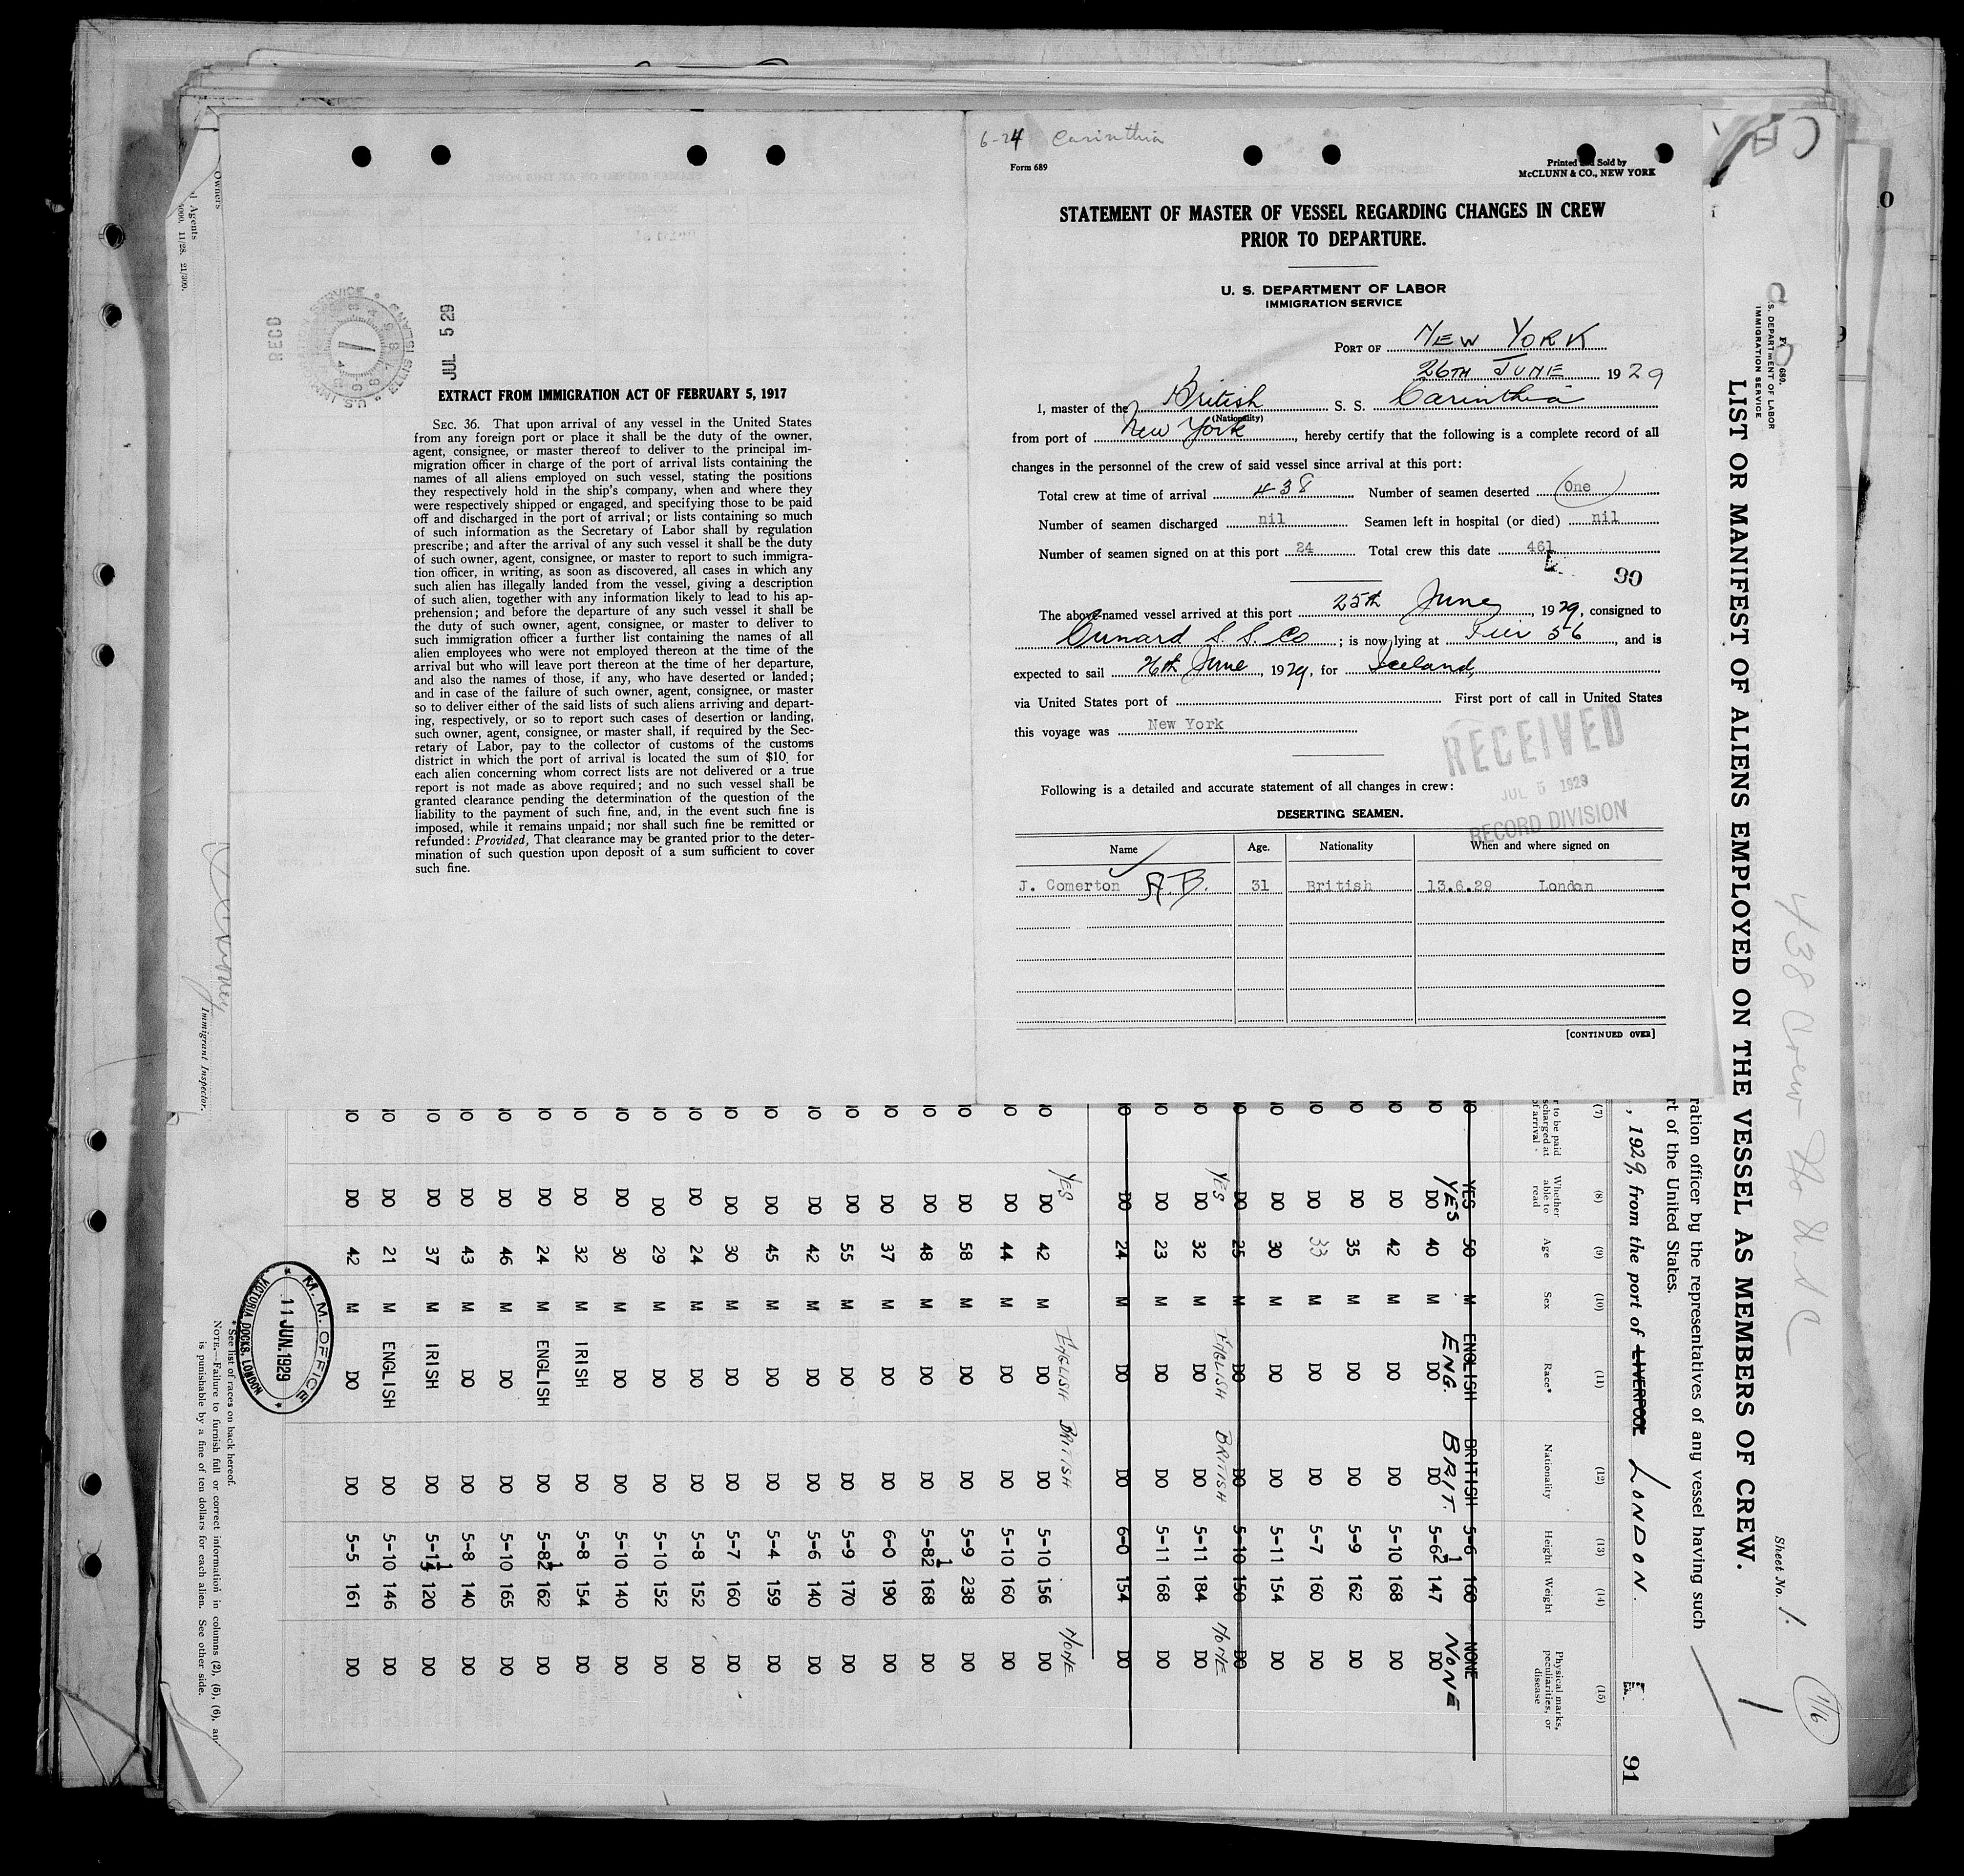 6-24 Carinthia
Form 689
Printed and Sold by
McCLUNN & CO., NEW YORK
STATEMENT OF MASTER OF VESSEL REGARDING CHANGES IN CREW
PRIOR TO DEPARTURE.
U. S. DEPARTMENT OF LABOR
IMMIGRATION SERVICE
PORT OF NEW YORK
26TH JUNE 1929
I, master of the British S. S. Carinthia
(Nationality)
from port of New York, hereby certify that the following is a complete record of all
changes in the personnel of the crew of said vessel since arrival at this port:
Total crew at time of arrival 438 Number of seamen deserted One
Number of seamen discharged nil Seamen left in hospital (or died) nil
Number of seamen signed on at this port 24 Total crew this date 461
90
The above-named vessel arrived at this port 25th June, 1929, consigned to
Cunard S. S. Co; is now lying at Pier 56, and is
expected to sail 26th June, 1929, for Iceland,
via United States port of First port of call in United States
this voyage was New York
RECEIVED
JUL 5 1929
RECORD DIVISION
Following is a detailed and accurate statement of all changes in crew:
DESERTING SEAMEN.
Name Age. Nationality When and where signed on
J. Comerton A.B. 31 British 13.6.29 London
[CONTINUED OVER]
RECD
U.S. IMMIGRATION SERVICE ELLIS ISLAND
JUL 5 29
EXTRACT FROM IMMIGRATION ACT OF FEBRUARY 5, 1917
SEC. 36. That upon arrival of any vessel in the United States
from any foreign port or place it shall be the duty of the owner,
agent, consignee, or master thereof to deliver to the principal im-
migration officer in charge of the port of arrival lists containing the
names of all aliens employed on such vessel, stating the positions
they respectively hold in the ship's company, when and where they
were respectively shipped or engaged, and specifying those to be paid
off and discharged in the port of arrival; or lists containing so much
of such information as the Secretary of Labor shall by regulation
prescribe; and after the arrival of any such vessel it shall be the duty
of such owner, agent, consignee, or master to report to such immigra-
tion officer, in writing, as soon as discovered, all cases in which any
such alien has illegally landed from the vessel, giving a description
of such alien, together with any information likely to lead to his ap-
prehension; and before the departure of any such vessel it shall be
the duty of such owner, agent, consignee, or master to deliver to
such immigration officer a further list containing the names of all
alien employees who were not employed thereon at the time of the
arrival but who will leave port thereon at the time of her departure,
and also the names of those, if any, who have deserted or landed;
and in case of the failure of such owner, agent, consignee, or master
so to deliver either of the said lists of such aliens arriving and depart-
ing, respectively, or so to report such cases of desertion or landing,
such owner, agent, consignee, or master shall, if required by the Sec-
retary of Labor, pay to the collector of customs of the customs
district in which the port of arrival is located the sum of $10 for
each alien concerning whom correct lists are not delivered or a true
report is not made as above required; and no such vessel shall be
granted clearance pending the determination of the question of the
liability to the payment of such fine, and, in the event such fine is
imposed, while it remains unpaid; nor shall such fine be remitted or
refunded: Provided, That clearance may be granted prior to the deter-
mination of such question upon deposit of a sum sufficient to cover
such fine.
438 Crew
Sheet No. 1.
1
1/16
689.
S. DEPARTMENT OF LABOR
IMMIGRATION SERVICE
LIST OR MANIFEST OF ALIENS EMPLOYED ON THE VESSEL AS MEMBERS OF CREW.
ration officer by the representatives of any vessel having such
rt of the United States.
, 1929, from the port of LIVERPOOL LONDON.
91
(7) (8) (9) (10) (11) (12) (13) (14) (15)
r to be paid
scharged at
of arrival
Whether able to read
Age
Sex
Race*
Nationality
Height
Weight
Physical marks, peculiarities, or disease
YES 50 M ENGLISH BRITISH 5-6 160 NONE
YES ENG. BRIT. NONE
DO 40 M DO DO 5-6½ 147 DO
DO 42 M DO DO 5-10 168 DO
DO 35 M DO DO 5-9 162 DO
DO 33 M DO DO 5-7 160 DO
DO 30 M DO DO 5-11 154 DO
DO 25 M DO DO 5-10 150 DO
YES ENGLISH BRITISH NONE
DO 32 M DO DO 5-11 184 DO
DO 23 M DO DO 5-11 168 DO
DO 24 M DO DO 6-0 154 DO
YES ENGLISH BRITISH NONE
DO 42 M DO DO 5-10 156 DO
DO 44 M DO DO 5-10 160 DO
DO 58 M DO DO 5-9 238 DO
DO 48 M DO DO 5-8½ 168 DO
DO 37 M DO DO 6-0 190 DO
DO 55 M DO DO 5-9 170 DO
DO 42 M DO DO 5-6 140 DO
DO 45 M DO DO 5-4 159 DO
DO 30 M DO DO 5-7 160 DO
DO 24 M DO DO 5-8 152 DO
DO 29 M DO DO 5-10 152 DO
DO 30 M DO DO 5-10 140 DO
DO 32 M IRISH DO 5-8 154 DO
DO 24 M ENGLISH DO 5-8½ 162 DO
DO 46 M DO DO 5-10 165 DO
DO 43 M DO DO 5-8 140 DO
DO 37 M IRISH DO 5-1½ 120 DO
DO 21 M ENGLISH DO 5-10 146 DO
DO 42 M DO DO 5-5 161 DO
M. M. OFFICE
11 JUN. 1929
VICTORIA DOCKS, LONDON
* See list of races on back hereof.
NOTE.—Failure to furnish full or correct information in columns (2), (5), (6), an
is punishable by a fine of ten dollars for each alien. See other side.
Immigrant Inspector.
Owners
d Agents
11/28. 21/309.